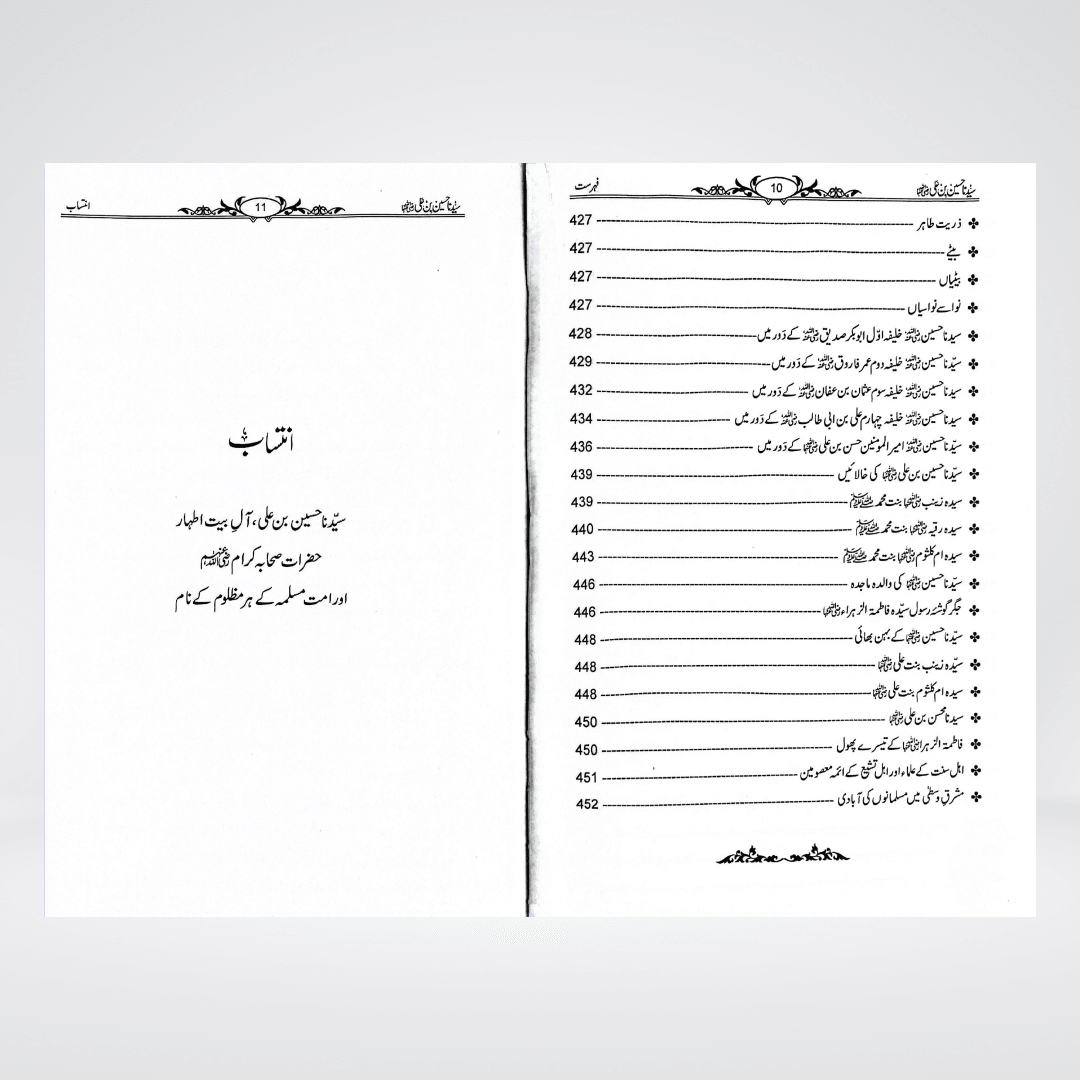 سیّدنا حسین بن علی رضی اللہ عنہما 10 فہرست
ذریت طاہر 427
بیٹے 427
بیٹیاں 427
نواسے نواسیاں 427
سیدنا حسین رضی اللہ عنہ خلیفہ اوّل ابوبکر صدیق رضی اللہ عنہ کے دَور میں 428
سیّدنا حسین رضی اللہ عنہ خلیفہ دوم عمر فاروق رضی اللہ عنہ کے دَور میں 429
سیدنا حسین رضی اللہ عنہ خلیفہ سوم عثمان بن عفان رضی اللہ عنہ کے دَور میں 432
سیدنا حسین رضی اللہ عنہ خلیفہ چہارم علی بن ابی طالب رضی اللہ عنہ کے دَور میں 434
سیّدنا حسین رضی اللہ عنہ امیر المومنین حسن بن علی رضی اللہ عنہما کے دَور میں 436
سیّدنا حسین بن علی رضی اللہ عنہما کی خالائیں 439
سیدہ زینب رضی اللہ عنہا بنت محمد ﷺ 439
سیدہ رقیہ رضی اللہ عنہا بنت محمد ﷺ 440
سیدہ ام کلثوم رضی اللہ عنہا بنت محمد ﷺ 443
سیّدنا حسین رضی اللہ عنہ کی والدہ ماجدہ 446
جگر گوشۂ رسول سیّدہ فاطمۃ الزہراء رضی اللہ عنہا 446
سیّدنا حسین رضی اللہ عنہ کے بہن بھائی 448
سیّدہ زینب بنت علی رضی اللہ عنہا 448
سیدہ ام کلثوم بنت علی رضی اللہ عنہا 448
سیدنا محسن بن علی رضی اللہ عنہما 450
فاطمۃ الزہرا رضی اللہ عنہا کے تیسرے پھول 450
اہل سنت کے علماء اور اہل تشیع کے ائمہ معصومین 451
مشرقِ وسطیٰ میں مسلمانوں کی آبادی 452
سیّدنا حسین بن علی رضی اللہ عنہما 11 انتساب
انتساب
سیّدنا حسین بن علی، آلِ بیت اطہار
حضرات صحابہ کرام رضی اللہ عنہم
اور امت مسلمہ کے ہر مظلوم کے نام